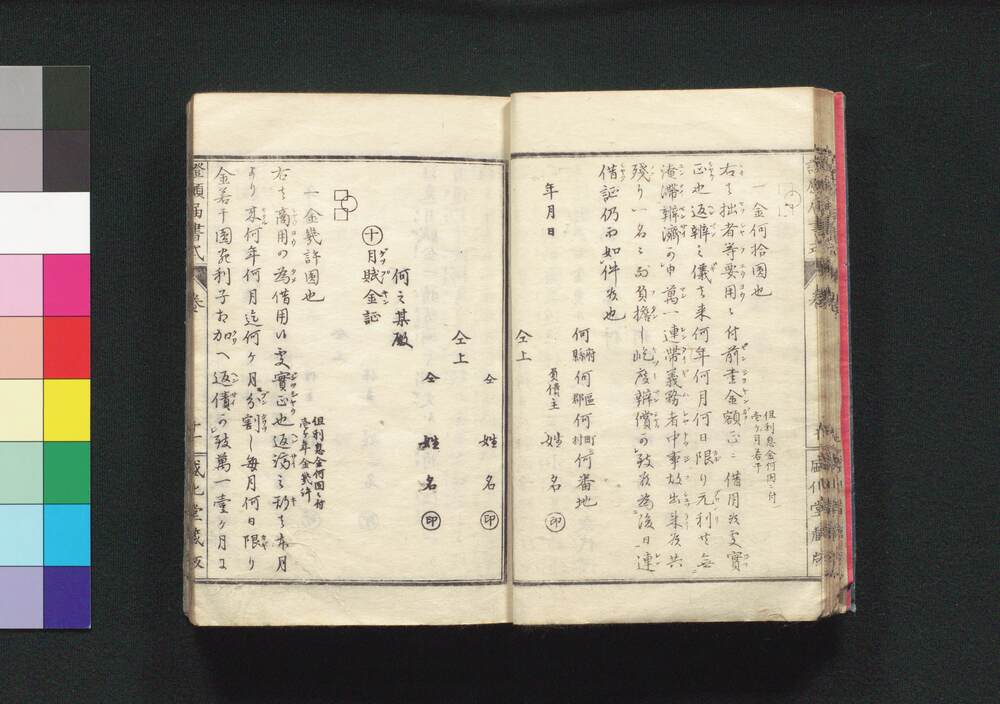 一金何拾圓也
但利息金何圓ニ付
壱ヶ月若干
右ハ拙者等要用ニ付前書金額正ニ借用致実
正也返辨之儀ハ来何年何月何日限り元利共無
淹滞辨濟可申萬一連帶義務者中事故出来致共
残り一名ニ而負擔し屹度辨償可致為後日連
借証仍而如件
年月日
何府縣何區郡何町村何番地
負債主 姓名 印
仝上
仝 姓名 印
仝上
仝 姓名 印
何之某殿
十 月賦金証
一金幾許圓也
但利息金何圓ニ付
壱ヶ年金幾許
右ハ商用の為借用い実實正也返済之形ハ本月
より来何年何月迄何ヶ月分割し毎月何日限り
金若干圓宛利子相加へ返債可致萬一壹ヶ月は
證願届書式
巻
十一
盛化堂蔵版